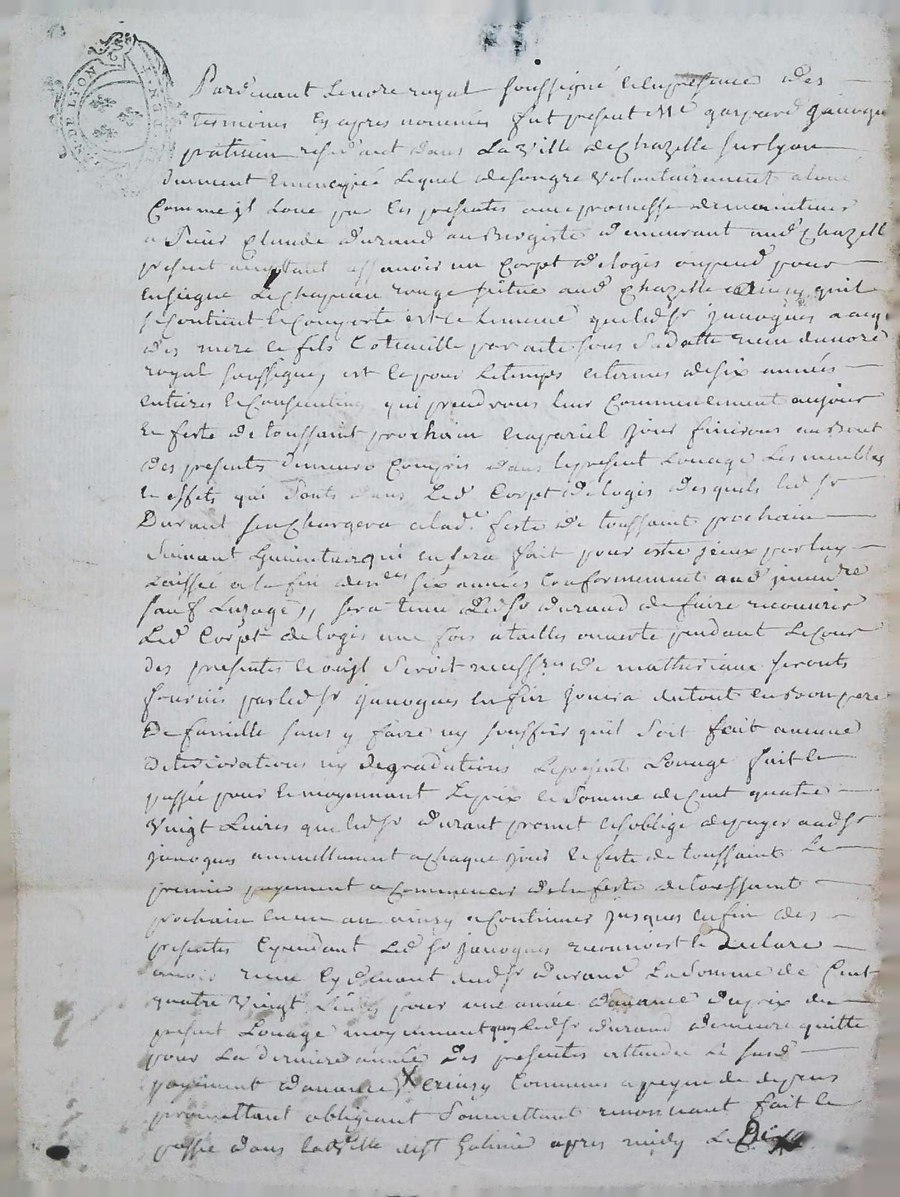 DE LYON
Pardevant le nore royal soussigné et en presence des
temoins cy apres nommés fut present Mre gaspard janoque
praticien residant dans la ville de Chazelle sur lyon
lequel de son gre volontairement a loué
Comme jl loue par les presentes avec promesse de maintenir
a sieur Claude durand aubergiste demeurant aud Chazelle
present acceptant assavoir un Corpt de logis ayand pour
enseigne le Chapeau rouge situé aud Chazelle et ainsy quil
se Contient et Comporte et le meme que led sr janoques a acqui
des mere et fils par acte sous sa datte receu du nore
royal soussigne, et ce pour le temps et terme de six années
entieres et Consecutives qui prendront leur Commencement au jour
et feste de toussaint prochain et a pareil jour finiront au bout
des presentes Compris dans le present Louage les meubles
et effets qui sonts dans led Corpt de logis desquels led sr
Durant sen Chargera a lad. feste de toussaint prochain
suivant linventaire qui en sera fait pour estre jceux par luy
Laissée a la fin desd six années Conformement aud jnventre
sauf lusage,, sera tenu led sr durand de faire recouvrir
led Corpt de logis une fois a tailles ouverte pendant le Cour
des presentes et ou jl seroit de matheriaux seronts
fournis par led sr janoques enfin jouira du tout en bon pere
De famille sans y faire ny souffrir quil soit fait aucune
deteriorations ny degradations le present Louage fait et
passée pour et moyennant le prix et somme de Cent quatre
vingt Livres que led sr durant promet et soblige de payer aud sr
janoques annuellement a Chaque jour et feste de toussaint Le
premier payement a Commencer de la feste de toussaint
prochain en un an ainsy a Continuer jusques en fin des
presentes Cependant led sr janoques reconnoist et declare
avoir receu Cy devant dud sr durand La somme de Cent
quatre vingt Livres pour une année davance du prix du
present Louage moyennant quoy led sr durand demeure quitte
pour La derniere année des presentes attendu le susd
payement davance X et ainsy Convenus a peyne de depens
promettant obligeant soumettant renonceant fait et
passé dans la ville de st Galmier apres midy Le Dix